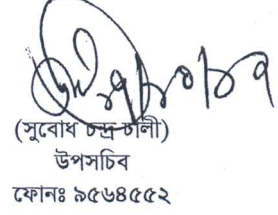 (সুবোধ চন্দ্র ঢালী)
উপসচিব
ফোনঃ ৯৫৬৪৫৫২